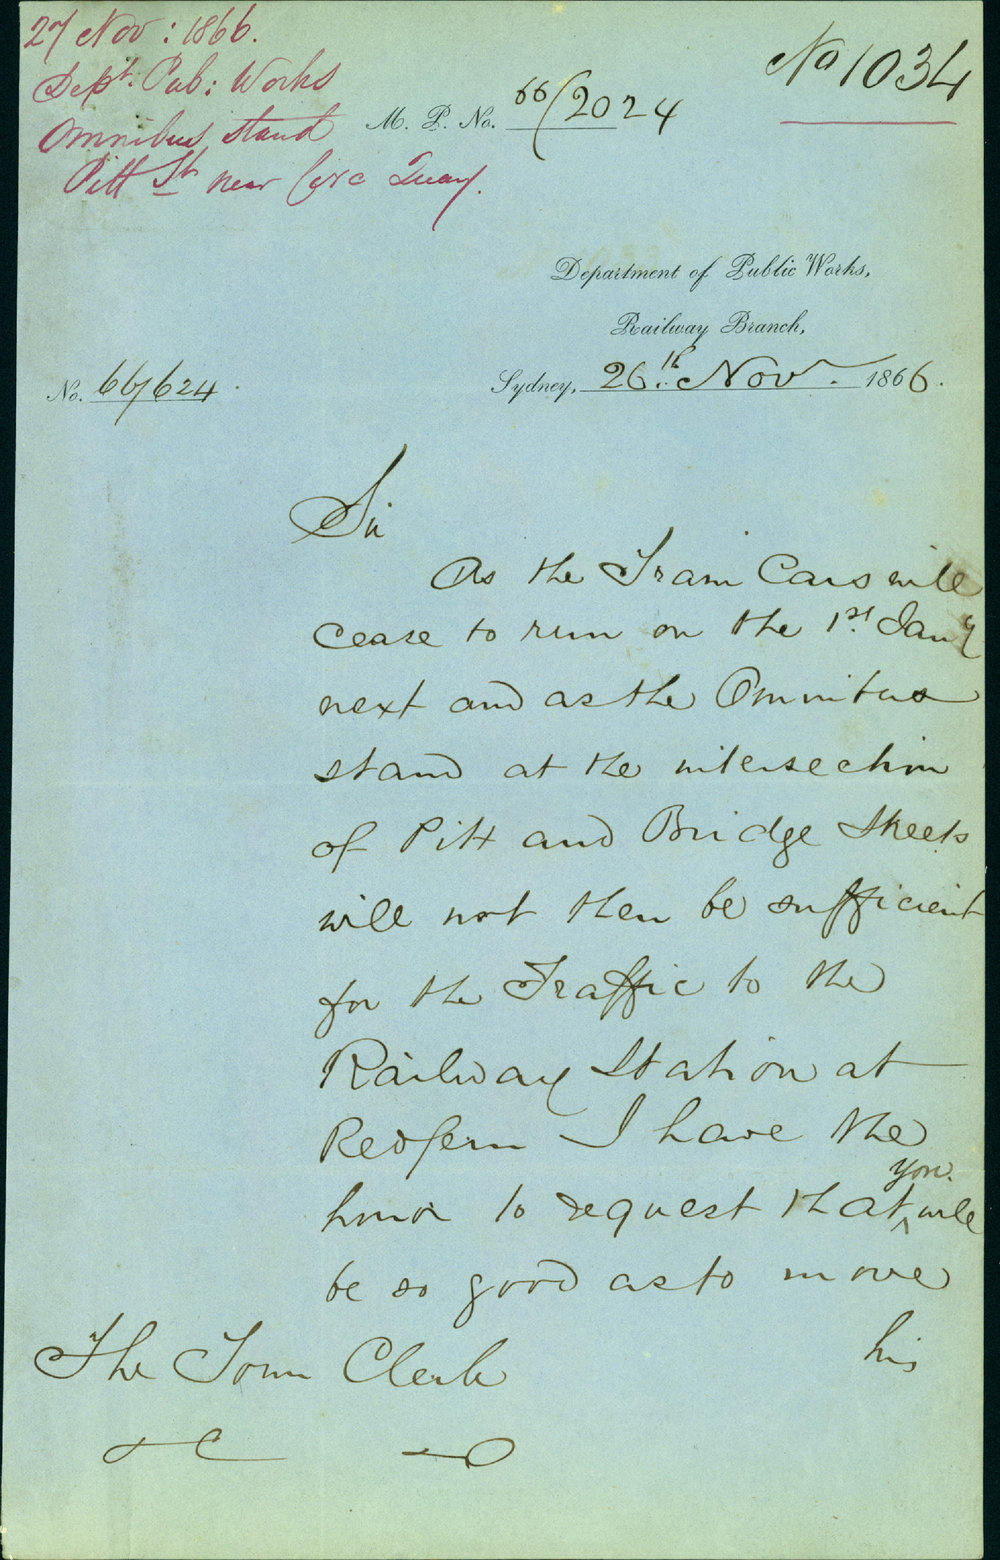 27 Nov : 1866.
Dept. Pub : Works
Omnibus stand
Pitt St near Circ Quay.
No 1034
M. P. No. 66/2024
Department of Public Works,
Railway Branch,
No. 66/624.
Sydney, 26th Nov. 1866.
Sir
As the Tram Cars will
cease to run on the 1st. Jany
next and as the Omnibus
stand at the intersection
of Pitt and Bridge Streets
will not then be sufficient
for the Traffic to the
Railway Station at
Redfern I have the
honor to request that ^you will
be so good as to move
his
The Town Clerk
&c &c